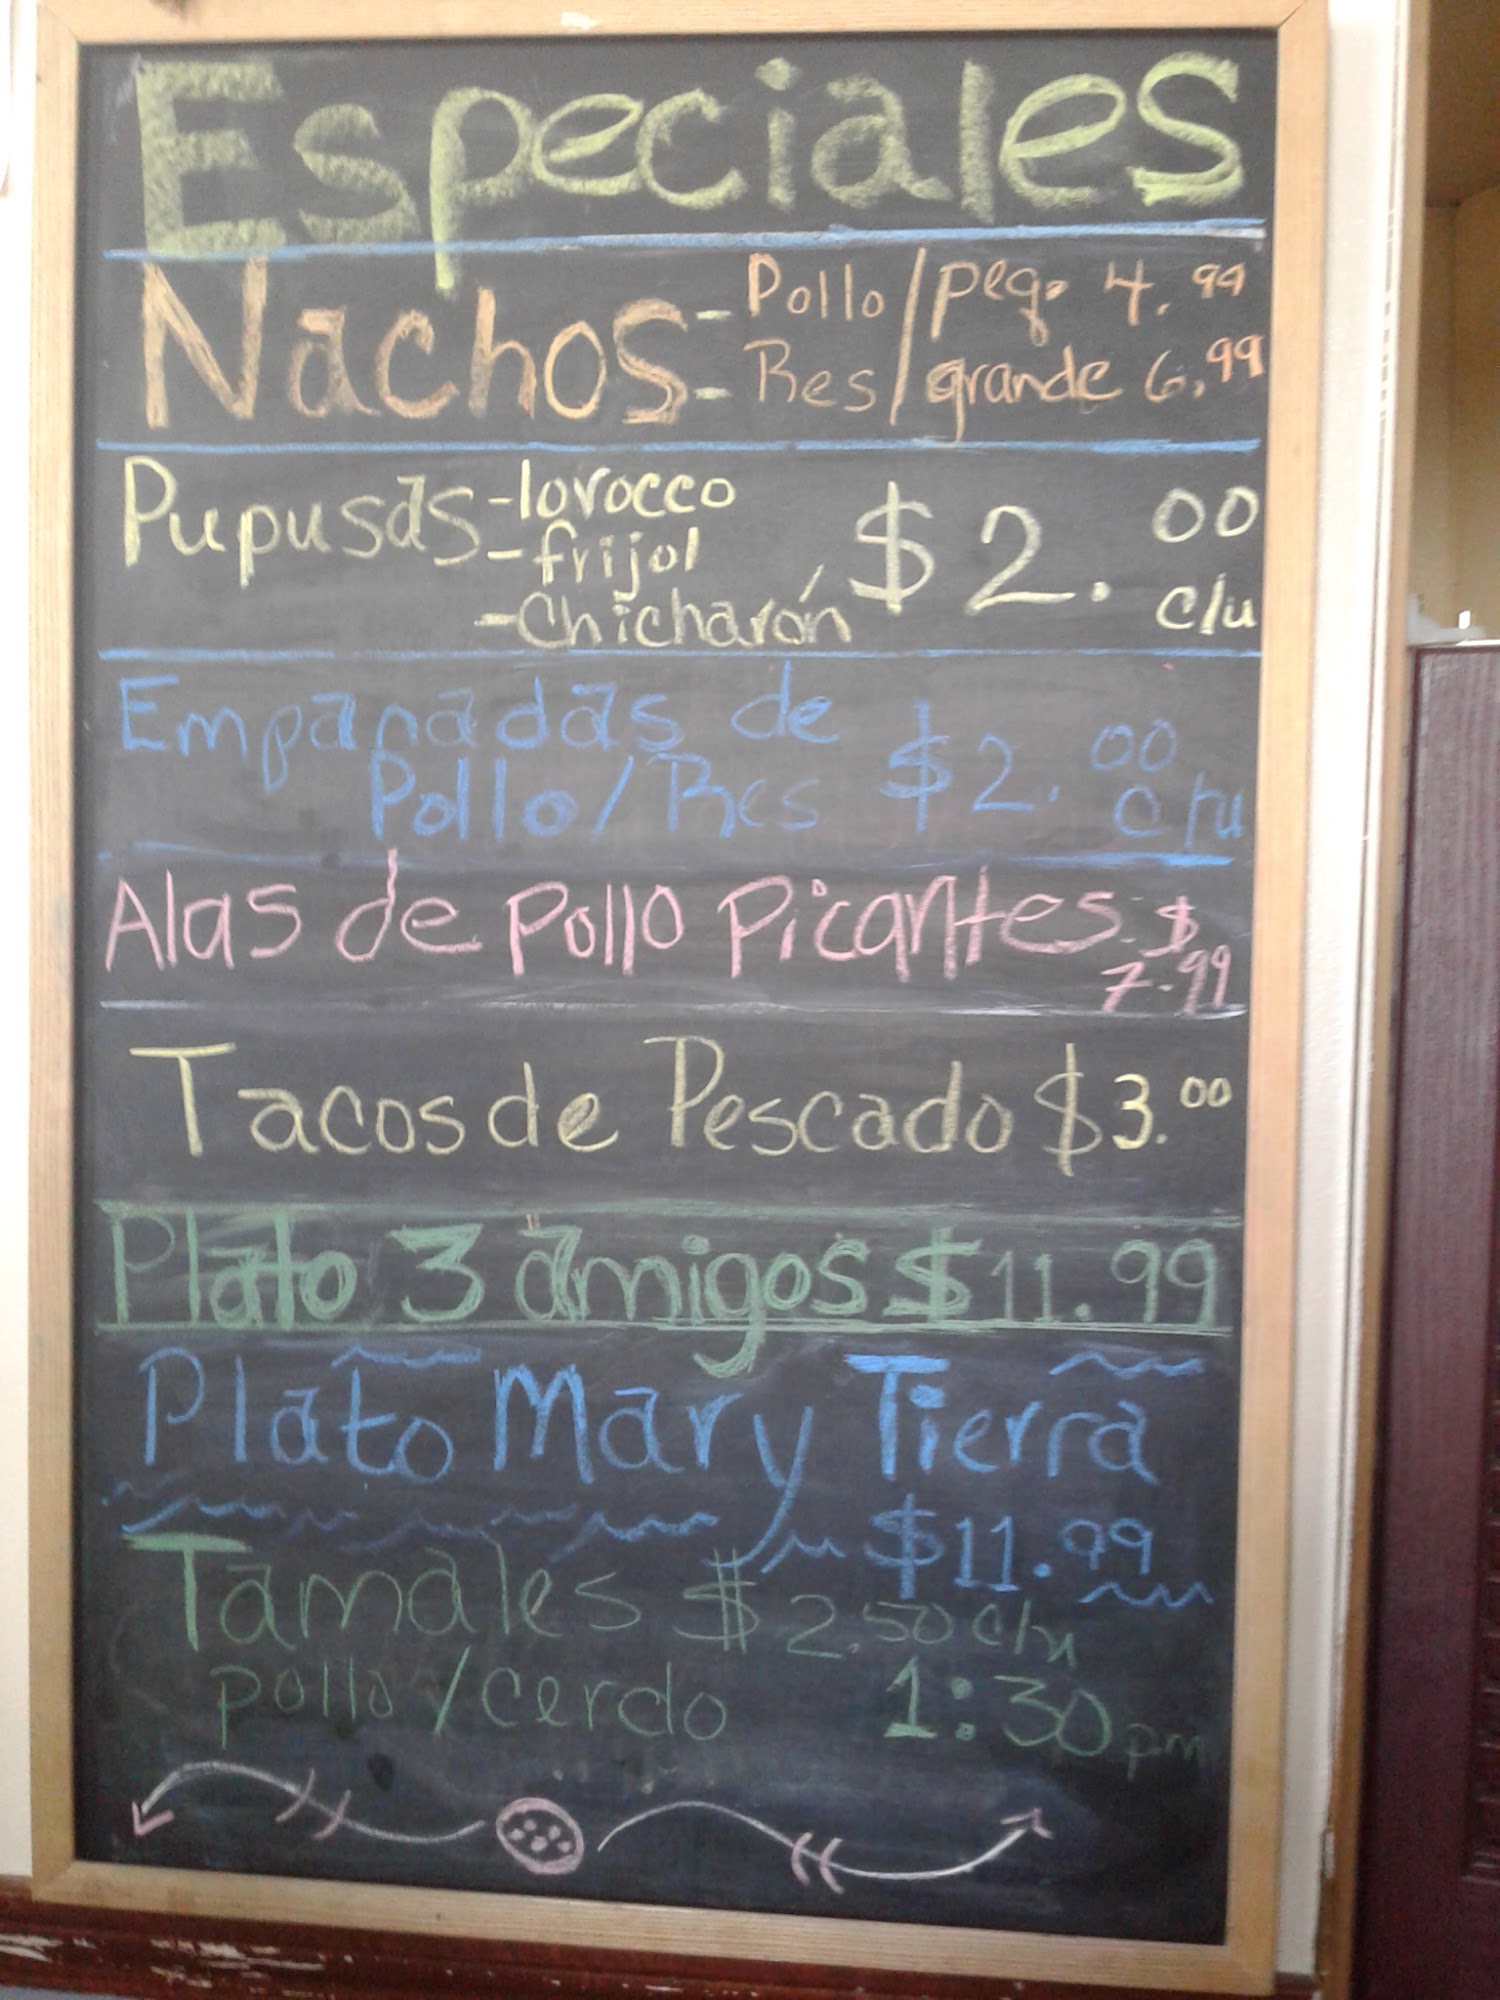 Especiales
Nachos - Pollo / peq. 4.99
- Res / grande 6.99
Pupusas - lorocco
- frijol
- Chicharón
$2.00 c/u
Empanadas de
Pollo/Res $2.00 c/u
Alas de pollo picantes $
7.99
Tacos de Pescado $3.00
Plato 3 amigos $11.99
Plato Mar y Tierra
$11.99
Tamales $2.50 c/u
pollo/cerdo 1:30 pm